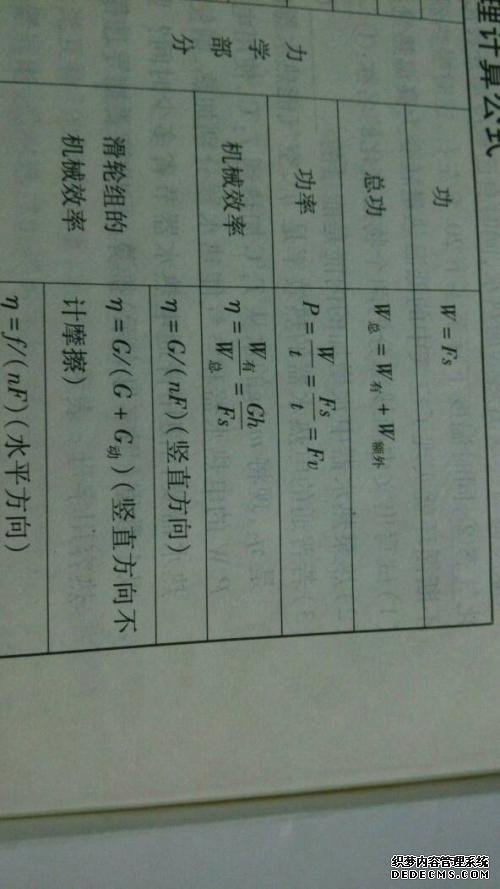 理计算公式
力
学
部
分
功
W = Fs
总功
W总 = W有 + W额外
功率
P = W/t = Fs/t = Fv
机械效率
η = W有/W总 = Gh/Fs
滑轮组的
机械效率
η = G/(nF)(竖直方向)
η = G/(G + G动)(竖直方向不
计摩擦)
η = f/(nF)(水平方向)
织梦内容管理系统
DEDECMS.COM